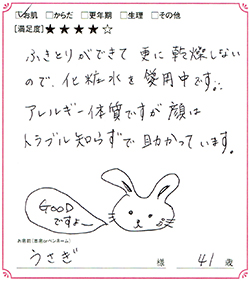 ☑お肌 □からだ □更年期 □生理 □その他
[満足度]★★★★☆
ふきとりができて 更に 乾燥しない
ので、化粧水を愛用中です。
アレルギー体質ですが 顔は
トラブル知らずで助かっています。
GOOD
ですよー
お名前(患家orペンネーム)
うさぎ 様 41 歳